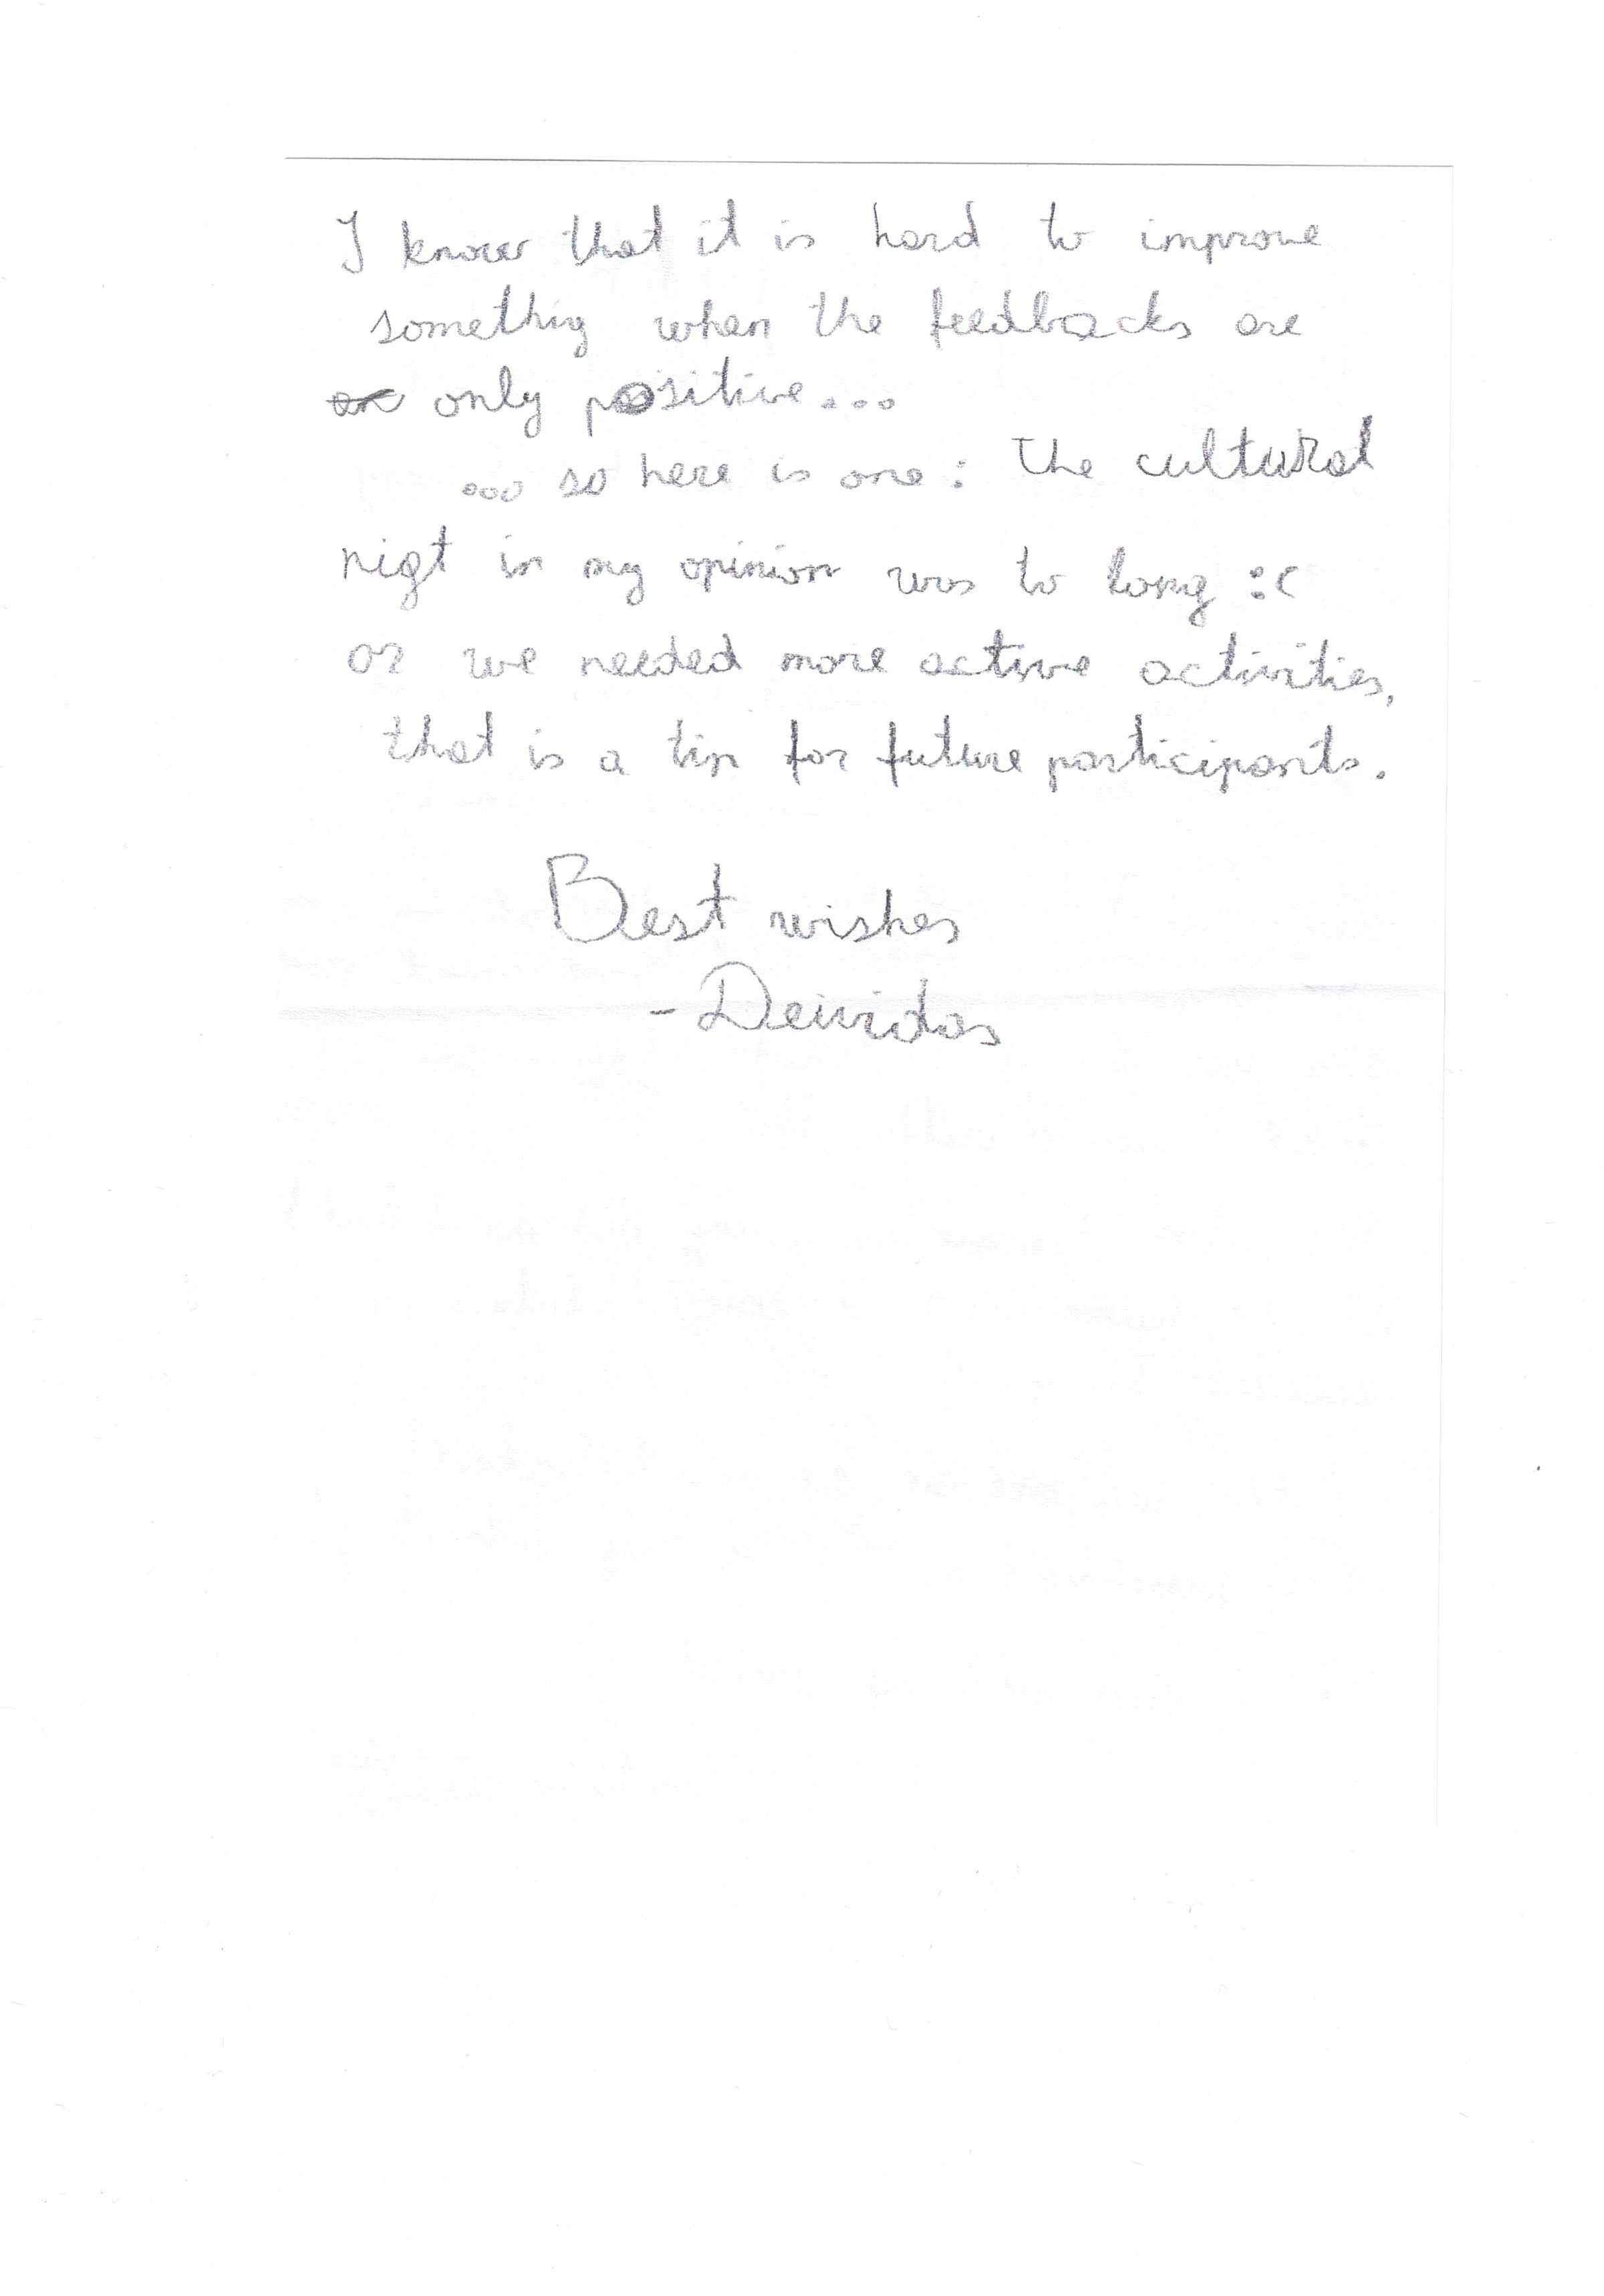 I know that it is hard to improve
something when the feedbacks are
only positive...
...so here is one: The cultural
nigt in my opinion was to long :(
or we needed more active activities,
that is a tip for future participants.
Best wishes
- Deividas